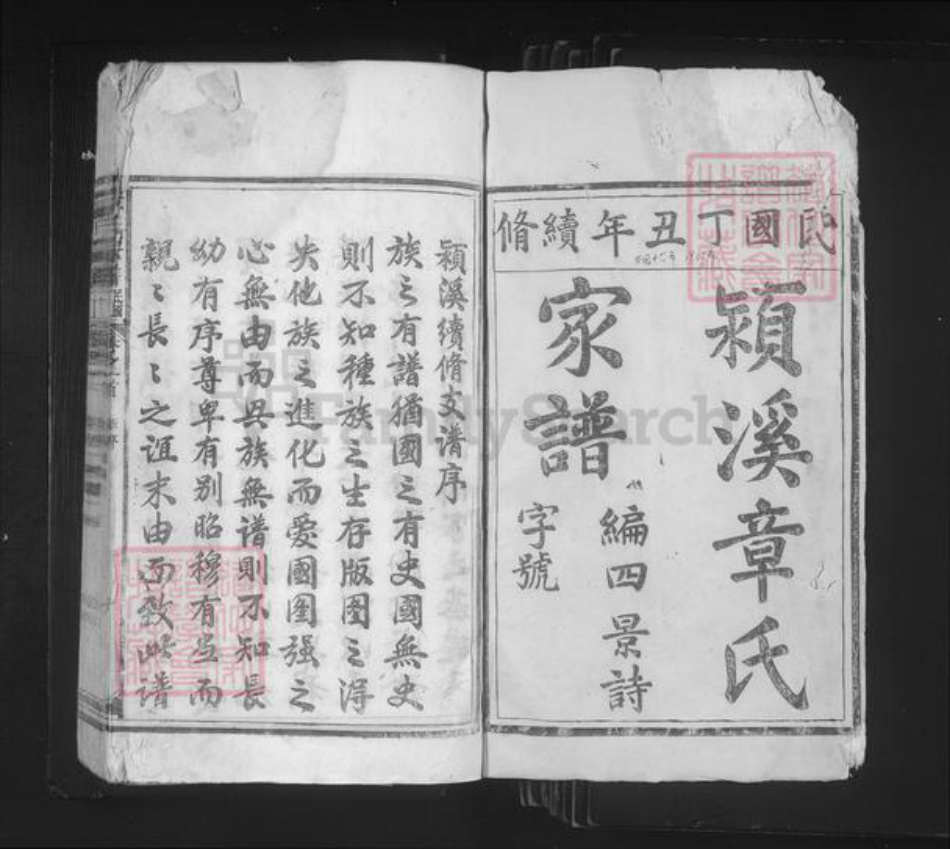 民國丁丑年續脩
潁溪章氏
家譜
編四景詩
字號
潁溪續脩支譜序
族之有譜猶國之有史國無史
則不知種族之生存版圖之得
失他族之進化而愛國圖强之
心無由而具族無譜則不知長
幼有序尊卑有别昭穆有岂而
親〻長〻之誼末由而致此譜
FamilySearch